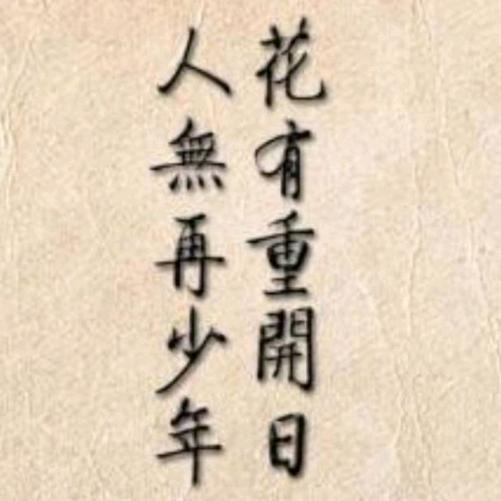 花有重開日
人無再少年